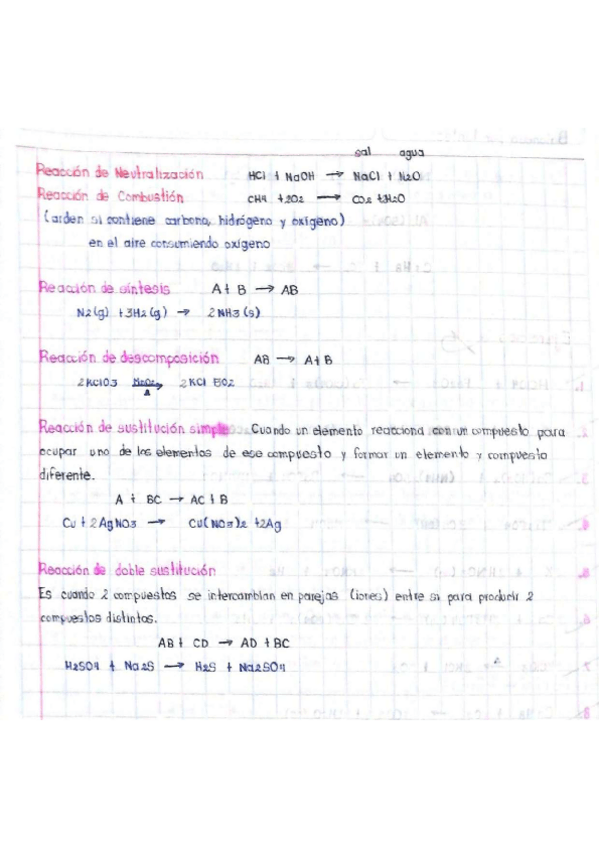 sal agua
Reacción de Neutralización HCl + NaOH → NaCl + H2O
Reacción de Combustión CH4 + 2O2 → CO2 + H2O
(arden si contiene carbono, hidrógeno y oxígeno)
en el aire consumiendo oxígeno
Reacción de síntesis A + B → AB
N2(g) + 3H2(g) → 2NH3(s)
Reacción de descomposición AB → A + B
2KClO3 MnO2 → Δ 2KCl
Reacción de sustitución simple Cuando un elemento reacciona con un compuesto para
ocupar uno de los elementos de ese compuesto y formar un elemento y compuesto
diferente.
A + BC → AC + B
Cu + 2AgNO3 → Cu(NO3)2 + 2Ag
Reacción de doble sustitución
Es cuando 2 compuestos se intercambian en parejas (iones) entre si para producir 2
compuestos distintos.
AB + CD → AD + BC
H2SO4 + Na2S → H2S + Na2SO4